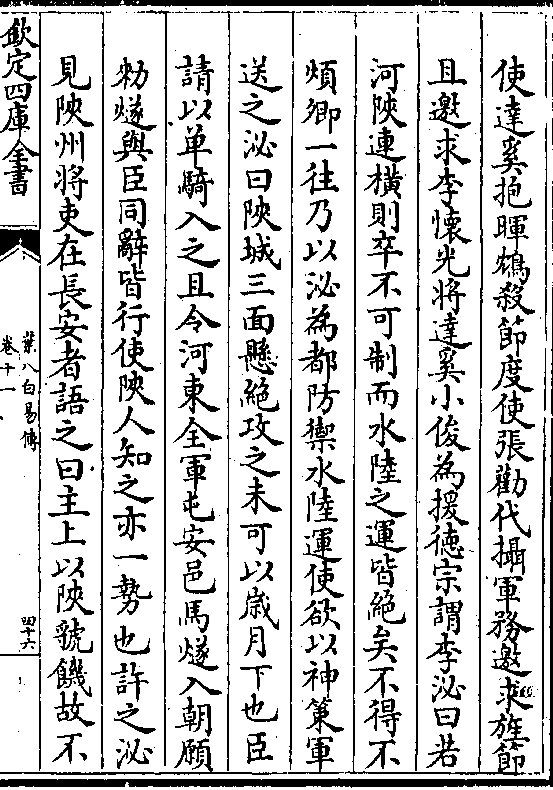 使達奚抱暉鴆殺節度使張勸代攝軍務邀求旌節
且邀求李懷光將達奚小俊為援德宗謂李泌曰若
河陜連横則卒不可制而水陸之運皆絶矣不得不
煩卿一往乃以泌為都防禦水陸運使欲以神策軍
送之泌曰陜城三面懸絶攻之未可以嵗月下也臣
請以单騎入之且令河東全軍屯安邑馬燧入朝願
勅燧與臣同辭皆行使陜人知之亦一勢也許之泌
見陜州將吏在長安者語之曰主上以陜虢饑故不
欽定四庫全書
葉八白易傳
卷十一
四十六